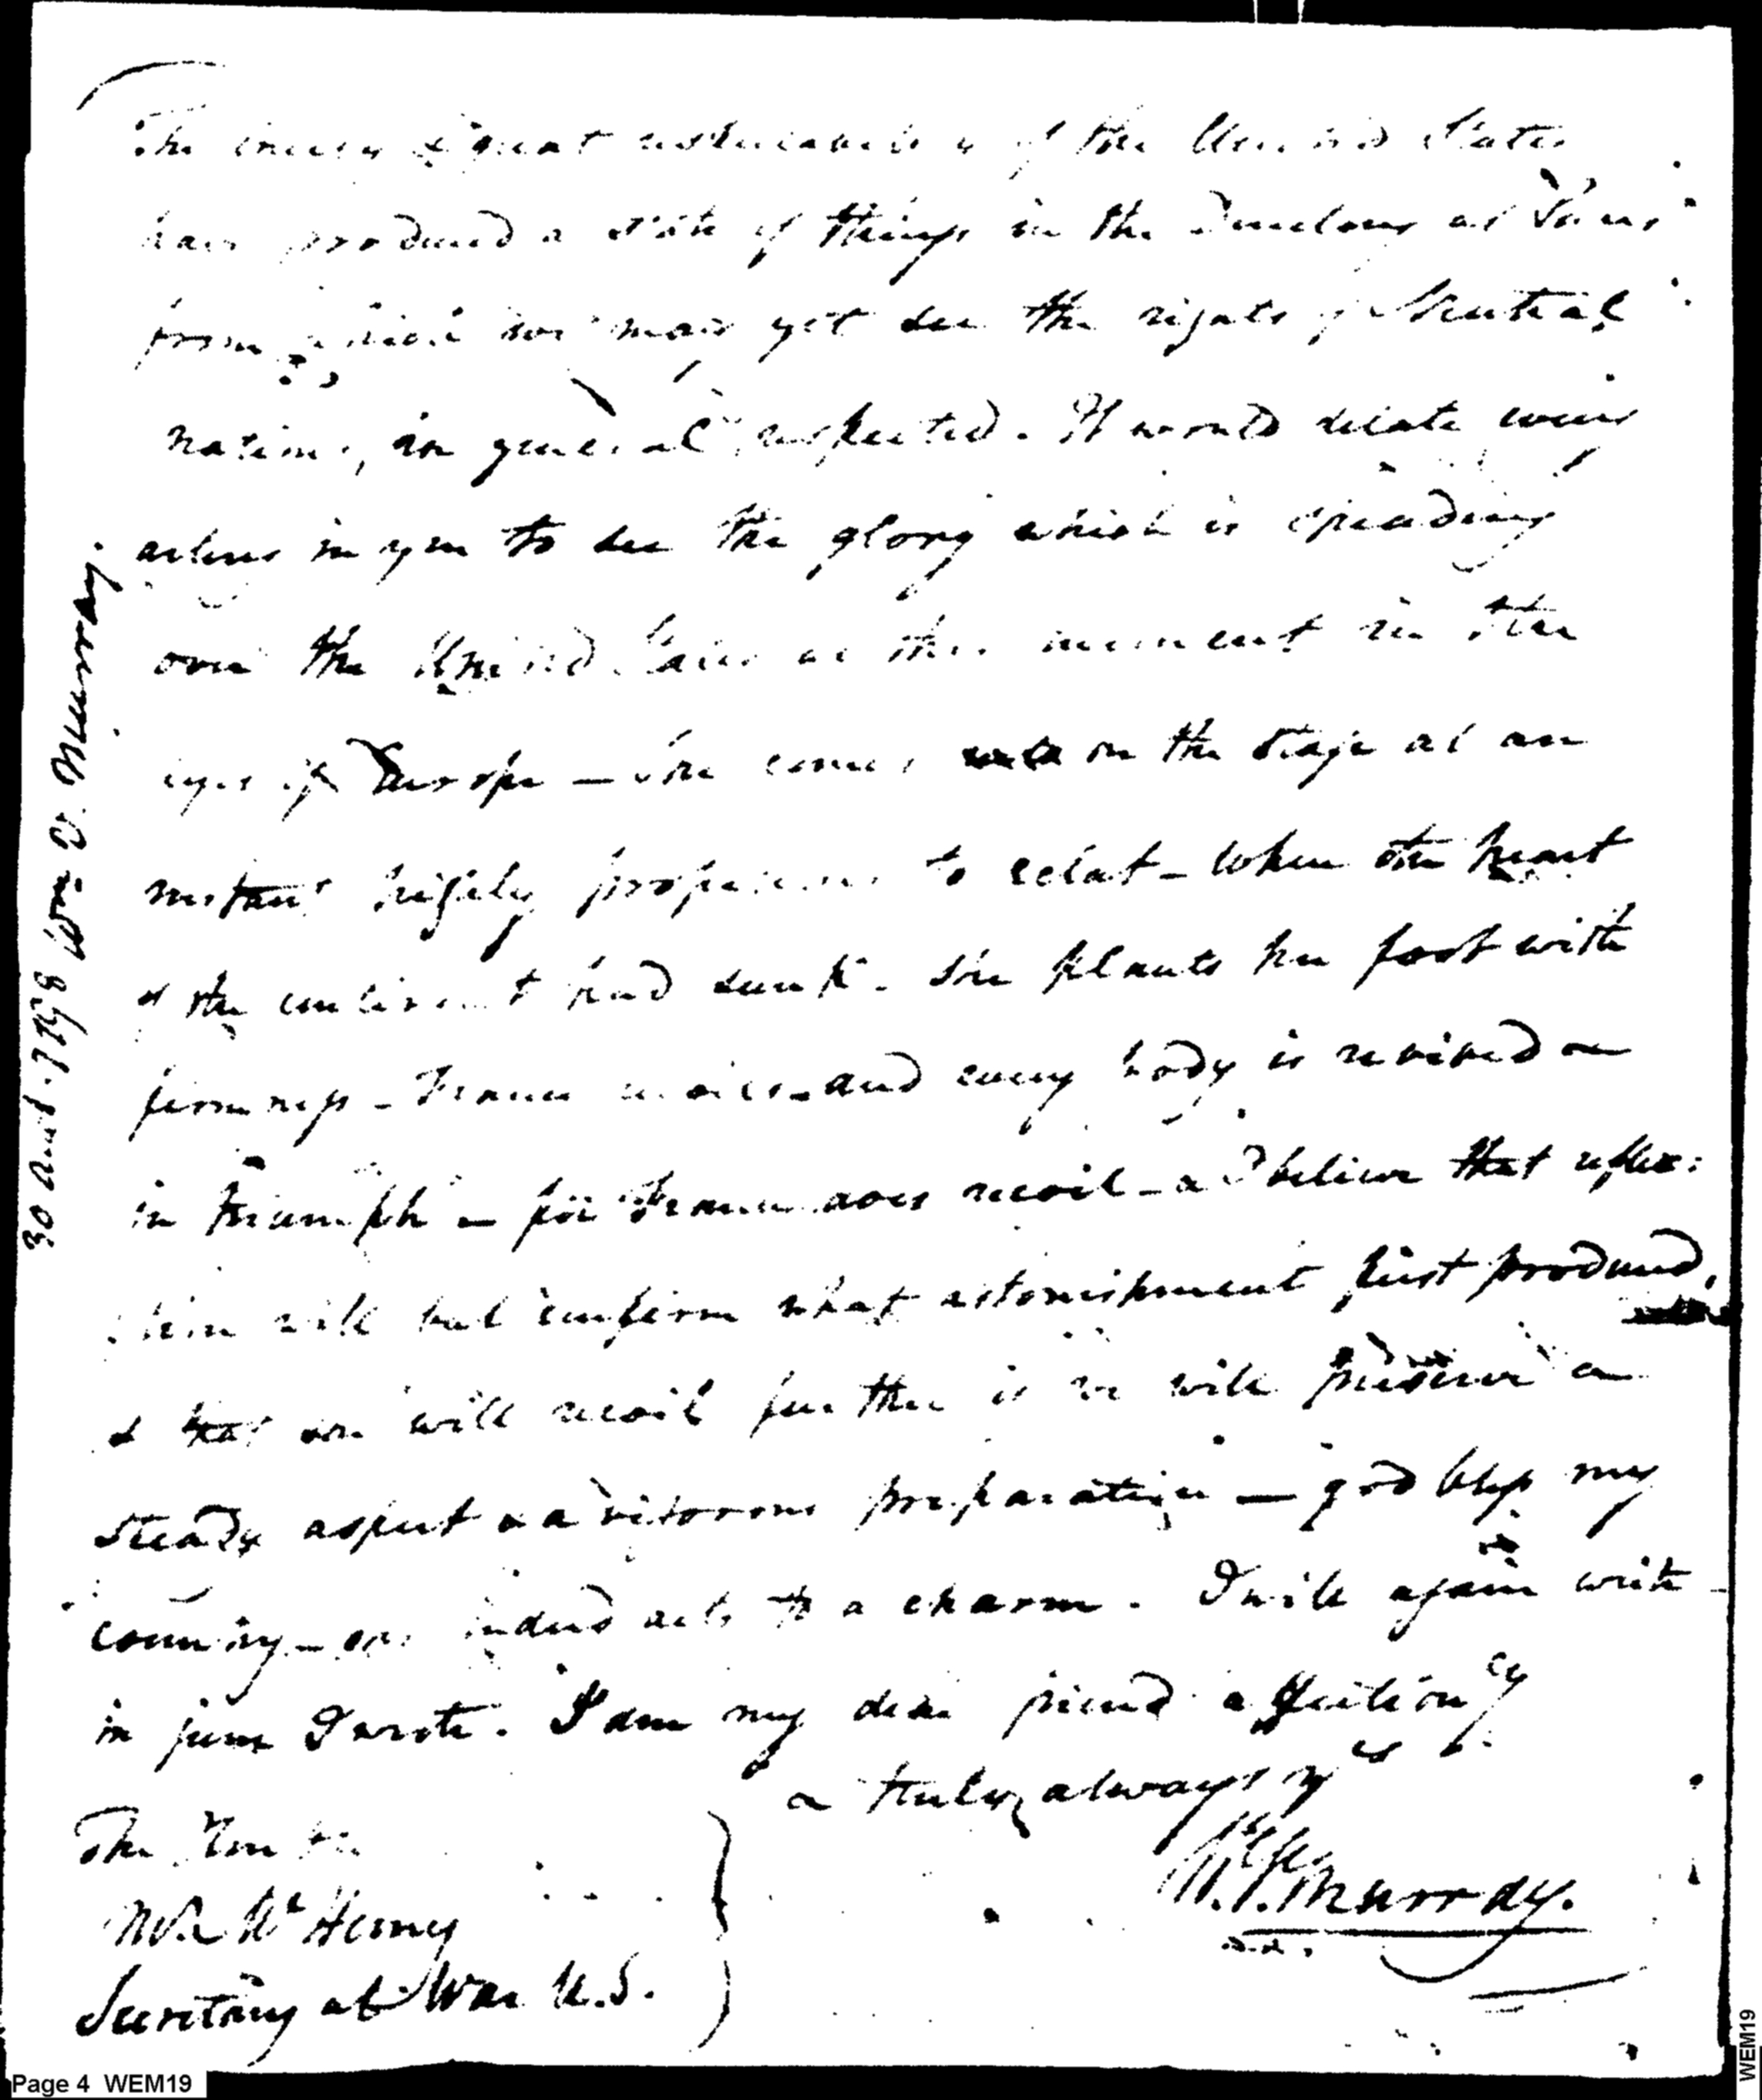 The energy & great unanimity of the United States
have produced a state of things in the Directory at Paris
from which we may yet see the rights of Neutral
nations, in general respected. It would dilate every
artery in you to see the glory which is spreading
over the United States at this moment in the
eyes of Europe — She comes on the stage at an
instant highly propitious to eclat - When the heart
of the continent had sunk. She plants her foot with
firmness - France recoils - and every body is revived &
in triumph - for France does recoil - & I believe that reflex:
:tion will but confirm what astonishment first produced,
& that she will recoil further if we will preserve a
steady aspect & a vigorous preparation — god bless my
country - one indeed acts to a charm. I will again write
in june I wrote. I am my dear friend affection^ly
& truly always y^rs
W.V. Murray.
The Hon ble
Mr. McHenry
Secretary at War U.S.
30 Augt. 1798 Wm. V. Murray.
Page 4 WEM19
WEM19